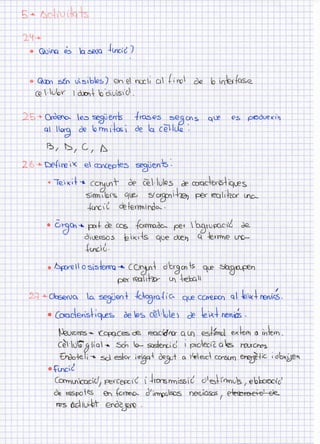 5 → Activitats
24 →
• Quina és la seva funció?
• Quan són visibles? en el nucli al final de la interfase
cel·lular i durant la divisió.
25 → Ordena les següents frases segons que es produeixin
al llarg de la mitosi de la cèl·lula:
B, D, C, A
26 → Defineix el conceptes següents:
• Teixit → conjunt de cèl·lules de característiques
similars que s'organitzen per realitzar una
funció determinda.
• Òrgan → part de cos formada per l'agrupació de
diversos teixits que duen a terme una
funció.
• Aparell o sistema → Conjunt d'òrgans que s'agrupen
per realitzar un treball
27 → Observa la següent fotografia que correspon al teixit nerviós.
• Característiques de les cèl·lules de teixit nerviós.
Neurones → Capaces de reaccionar a un estímul extern o intern.
Cèl·lula glial → Són la sostenció i protecció a les neurones
Endoteli → sol estar lligat degut a l'elevat consum energètic i oxigen
• Funció
Comunicació, percepció i transmissió d'estímuls, elaboració
de respostes en forma d'impulsos nerviosos,